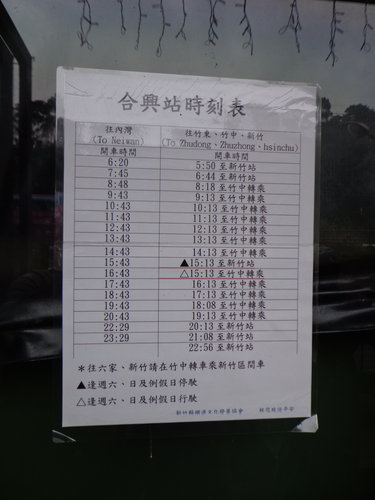 合興站時刻表
往內灣 往竹東、竹中、新竹
(To Neiwan) (To Zhudong、Zhuzhong、hsinchu)
開車時間 開車時間
6:20 5:50 至新竹站
7:45 6:44 至新竹站
8:48 8:18 至竹中轉乘
9:43 9:13 至竹中轉乘
10:43 10:13 至竹中轉乘
11:43 11:13 至竹中轉乘
12:43 12:13 至竹中轉乘
13:43 13:13 至竹中轉乘
14:43 14:13 至竹中轉乘
15:43 ▲15:13 至新竹站
16:43 △15:13 至竹中轉乘
17:43 16:13 至竹中轉乘
18:43 17:13 至竹中轉乘
19:43 18:08 至竹中轉乘
20:43 19:13 至竹中轉乘
22:29 20:13 至新竹站
23:29 21:08 至新竹站
22:56 至新竹站
*往六家、新竹請在竹中轉車乘新竹區間車
▲逢週六、日及例假日停駛
△逢週六、日及例假日行駛
新竹縣橫浪文化發展協會 祝您旅途平安